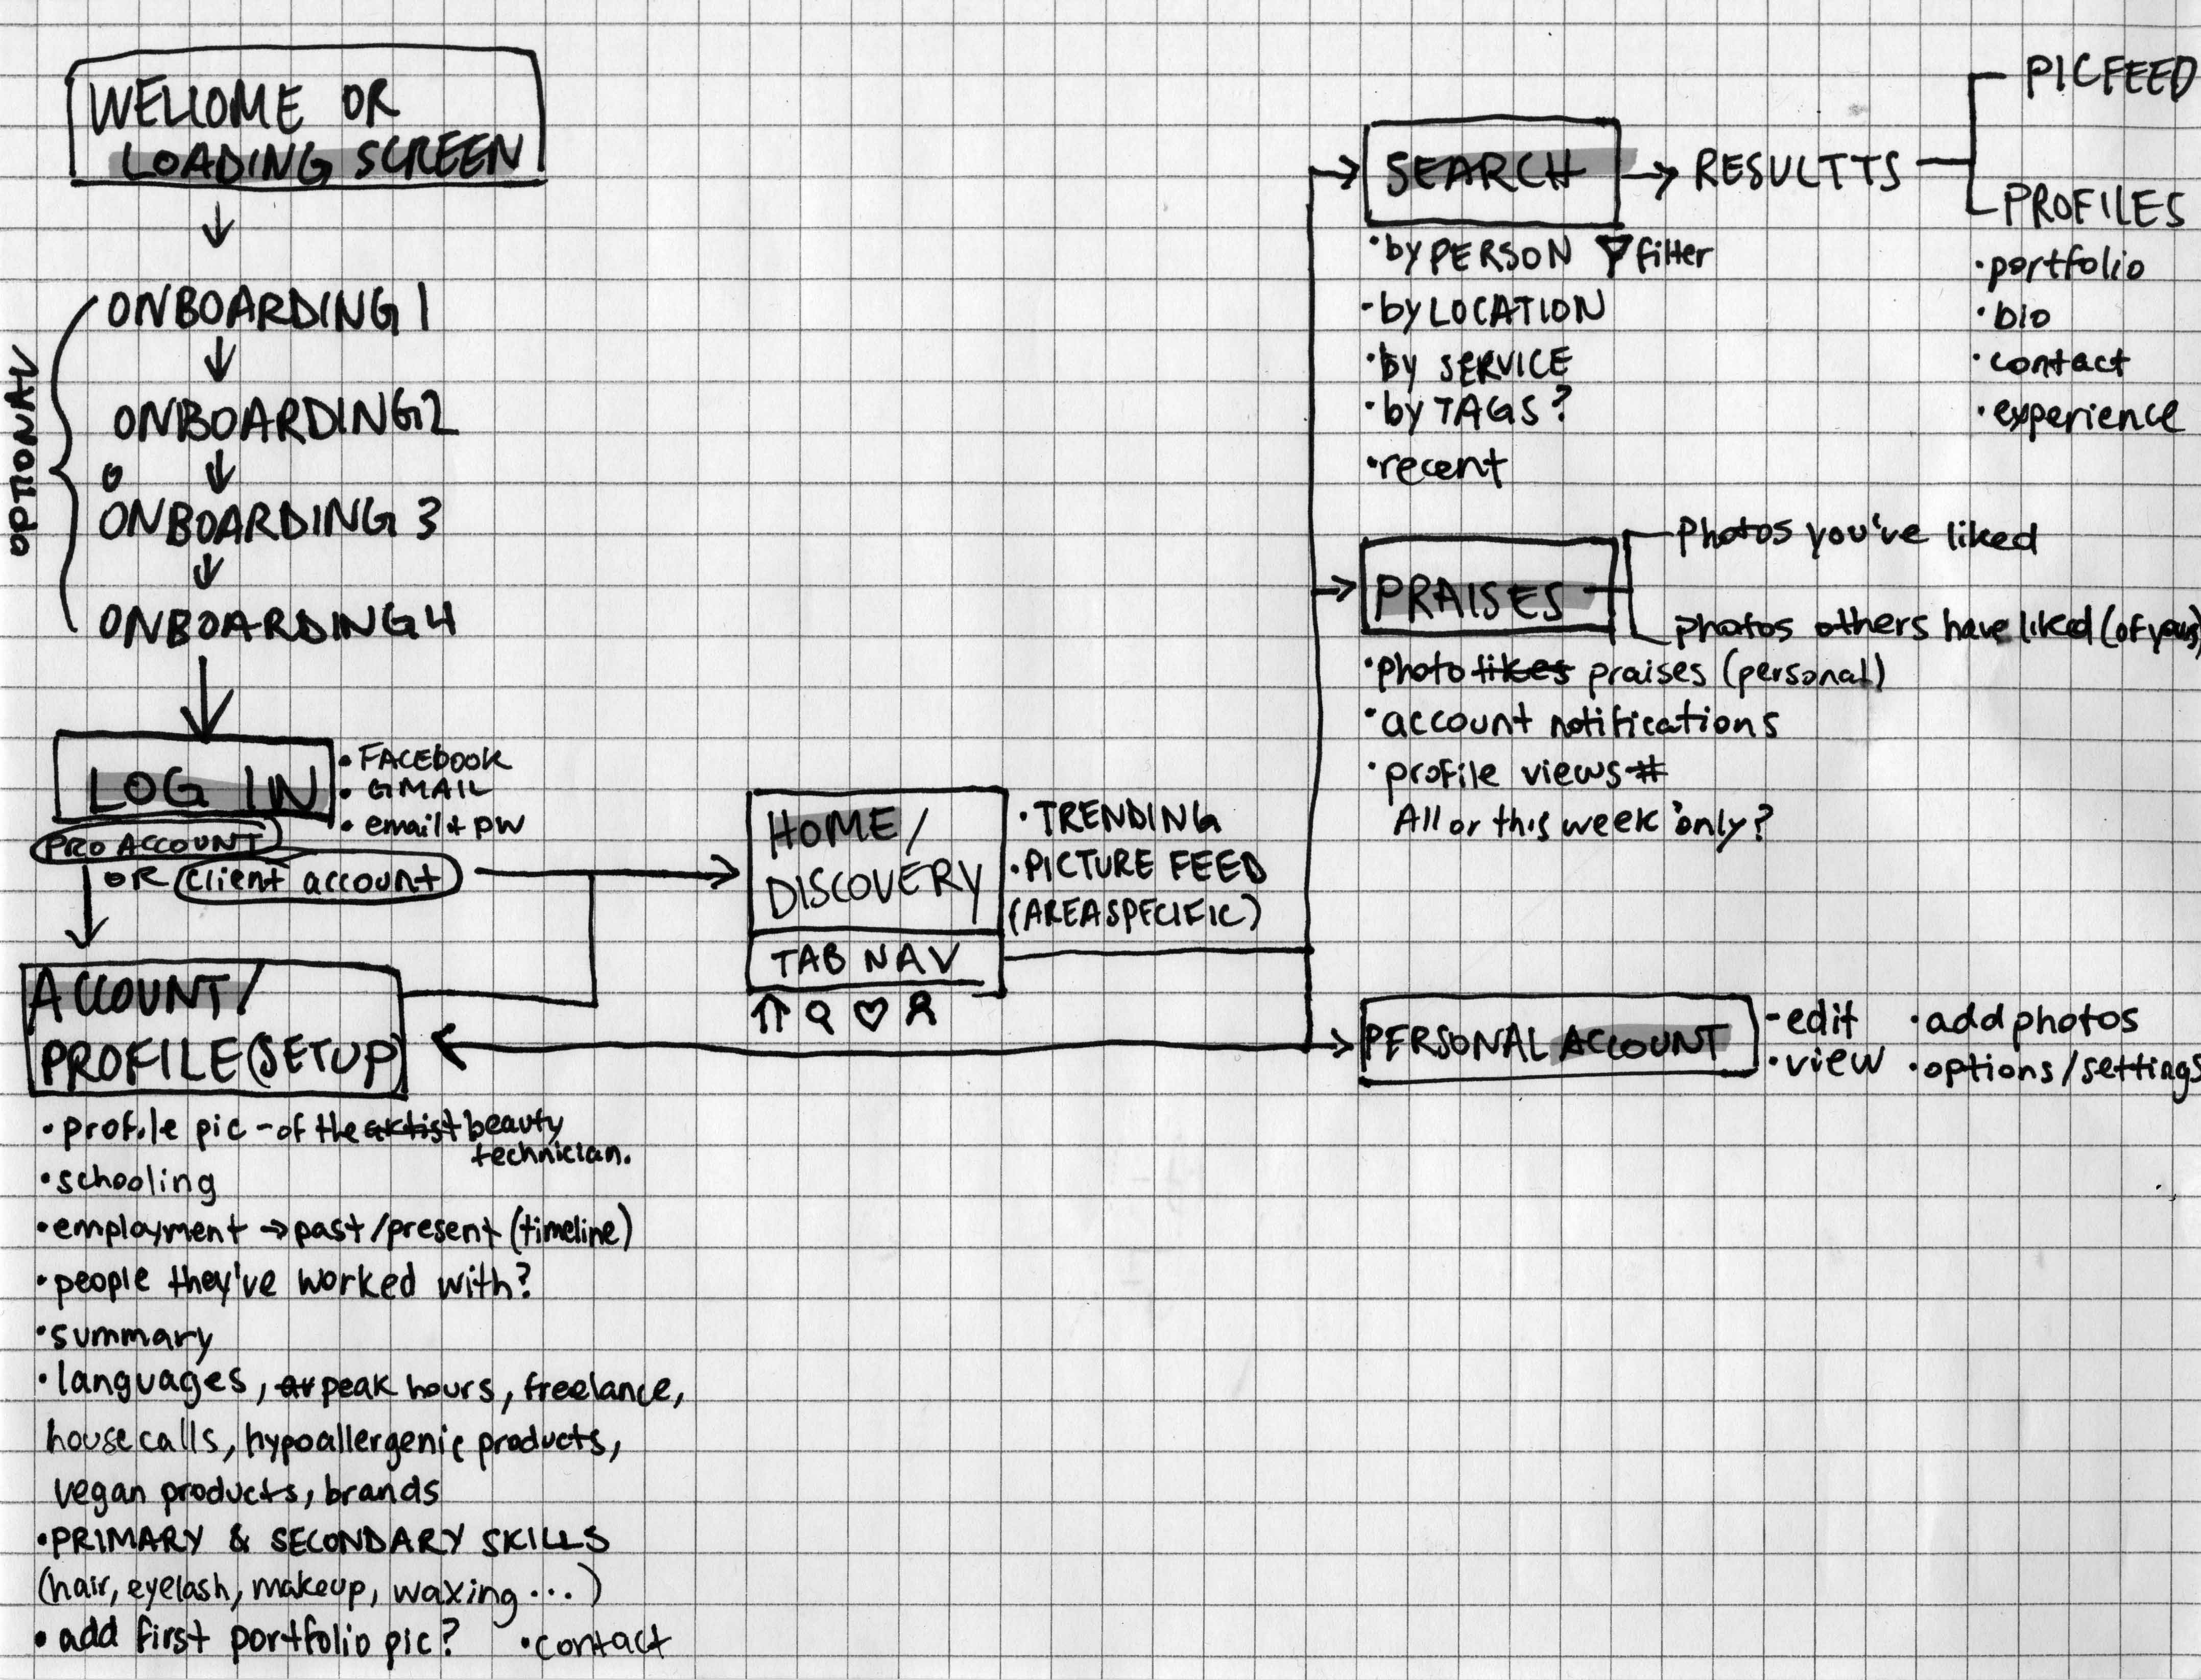 WELCOME OR
LOADING SCREEN
OPTIONAL
ONBOARDING 1
ONBOARDING 2
ONBOARDING 3
ONBOARDING 4
LOG IN
• FACEBOOK
• GMAIL
• email + pw
PRO ACCOUNT
OR client account
ACCOUNT/
PROFILE (SETUP)
• profile pic - of the artist beauty
technician.
• schooling
• employment → past/present (timeline)
• people they've worked with?
• summary
• languages, av peak hours, freelance,
house calls, hypoallergenic products,
vegan products, brands
• PRIMARY & SECONDARY SKILLS
(hair, eyelash, makeup, waxing ...)
• add first portfolio pic? • contact
HOME/
DISCOVERY
TAB NAV
• TRENDING
• PICTURE FEED
(AREA SPECIFIC)
SEARCH → RESULTTS
• by PERSON filter
- by LOCATION
• by SERVICE
• by TAGS?
• recent
PIC FEED
PROFILES
• portfolio
• bio
• contact
• experience
PRAISES
photos you've liked
photos others have liked (of yours)
• photo likes praises (personal)
• account notifications
• profile views #
All or this week only?
PERSONAL ACCOUNT
- edit • add photos
• view • options/settings